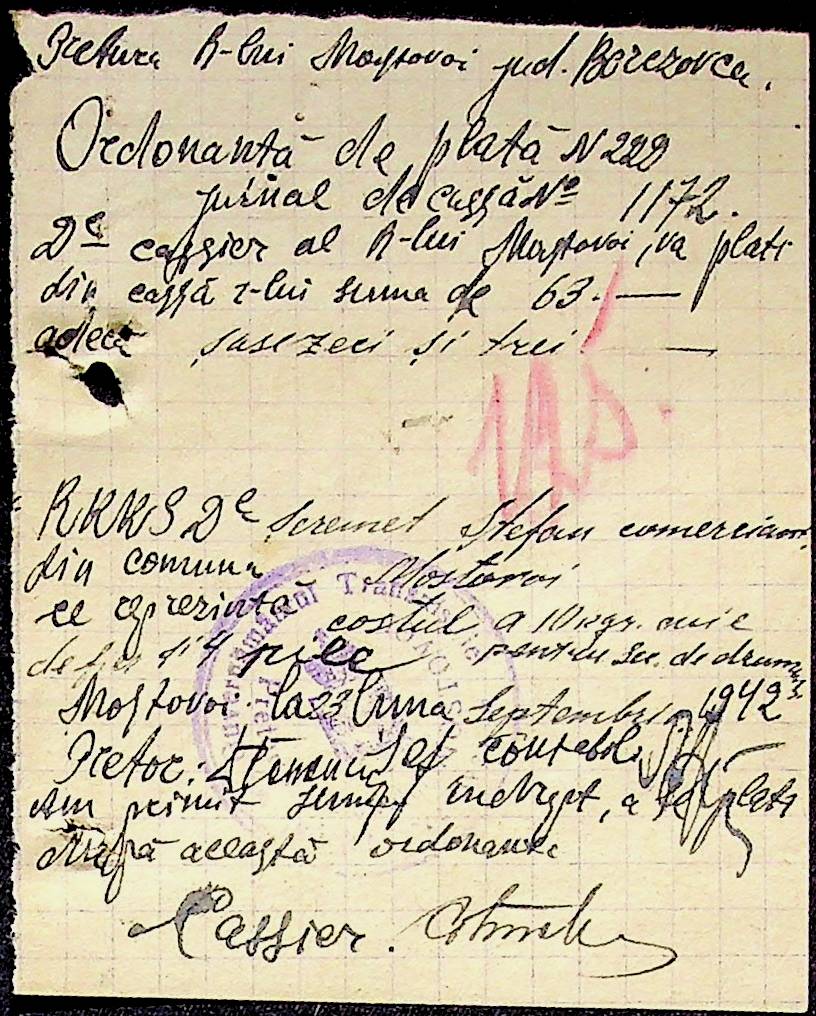 Pretura R-lui Mostovoi jud. Berezovca.
Ordonantă de plată N 222
jurnal de cassă № 1172.
Dl cassier al R-lui Mostovoi, va plati
din cassă r-lui suma de 63.—
adecă șasezeci și trei —
115.
RKKS Dl Seremet Stefan comerciant
din comuna Mostovoi
ce reprezintă costul a 10 kgr. cuie
de și 4 pentru ser. de drumuri
Mostovoi la 23 luna Septembrie 1942
Pretor: Sef contabil
Am primit suma în drept, a se plati
după această ordonanta
Cassier.
Guvernământul Transnistriei